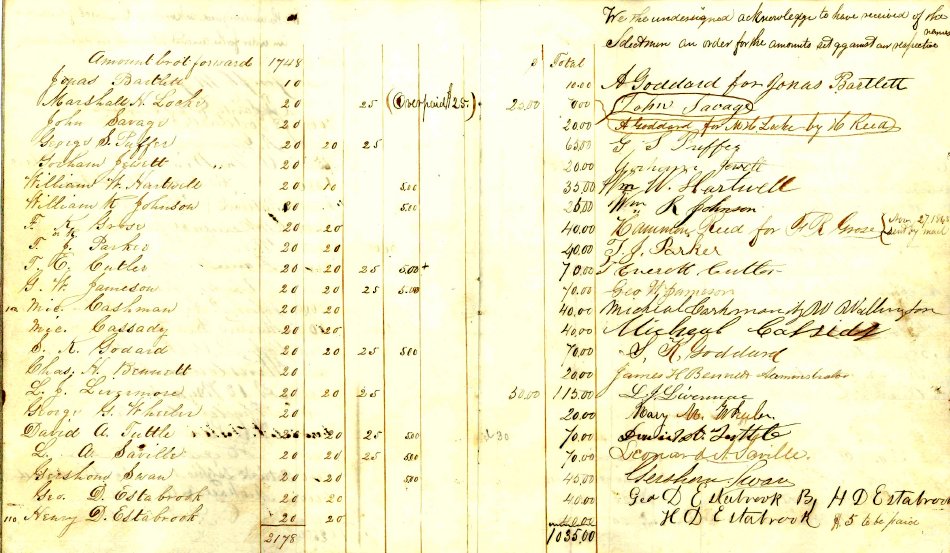 We the undersigned acknowledge to have received of the
Selectmen an order for the amounts set against our respective names
Amount brot forward 1748 $ Total
Jonas Bartlett 10 10.00 A Goddard for Jonas Bartlett
Marshall H. Locke 20 25 (Overpaid $25.) 25.00 John Savage
John Savage 20 20.00 A Goddard for M H Locke by H Reed
George S. Tuffer 20 20 25 65.00
Gorham Jewitt 20 20.00 Jewett
William W. Hartwell 20 10 5.00 35.00 Wm W. Hartwell
William R Johnson 20 5.00 25.00 Wm R Johnson
F. K. Grose 20 20 40.00 Hammon Reed for F R Grose { Nov 27 sent by mail
T. J. Parker 20 20 40.00 T J. Parker
T. E. Cutler 20 20 25 5.00 70.00 T Everett Cutler
G. W. Jameson 20 20 25 5.00 70.00 Geo W Jameson
Mic. Cashman 20 20 40.00 Micheal Carkman by W A Wellington
Mic. Cassady 20 20 40.00 Micheal Cassidy
S. R. Godard 20 20 25 5.00 70.00 S. R. Goddard
Chas. H. Bennett 20 20.00 James H Bennett Administrator
L. J. Livermore 20 20 25 50.00 115.00 L J Livermore
George H. Wheeler 20 20.00 Mary M. Wheeler
David A. Tuttle 20 20 25 5.00 70.00 David A. Tuttle
L. A. Saville 20 20 25 5.00 70.00 Leonard A Saville.
Gershom Swan 20 20 5.00 45.00 Gershom Swan
Geo. D. Estabrook 20 20 40.00 Geo D Estabrook By H D Estabrook
110 Henry D. Estabrook 20 20 40.00 H D Estabrook $5 to be paid
2178 1035.00